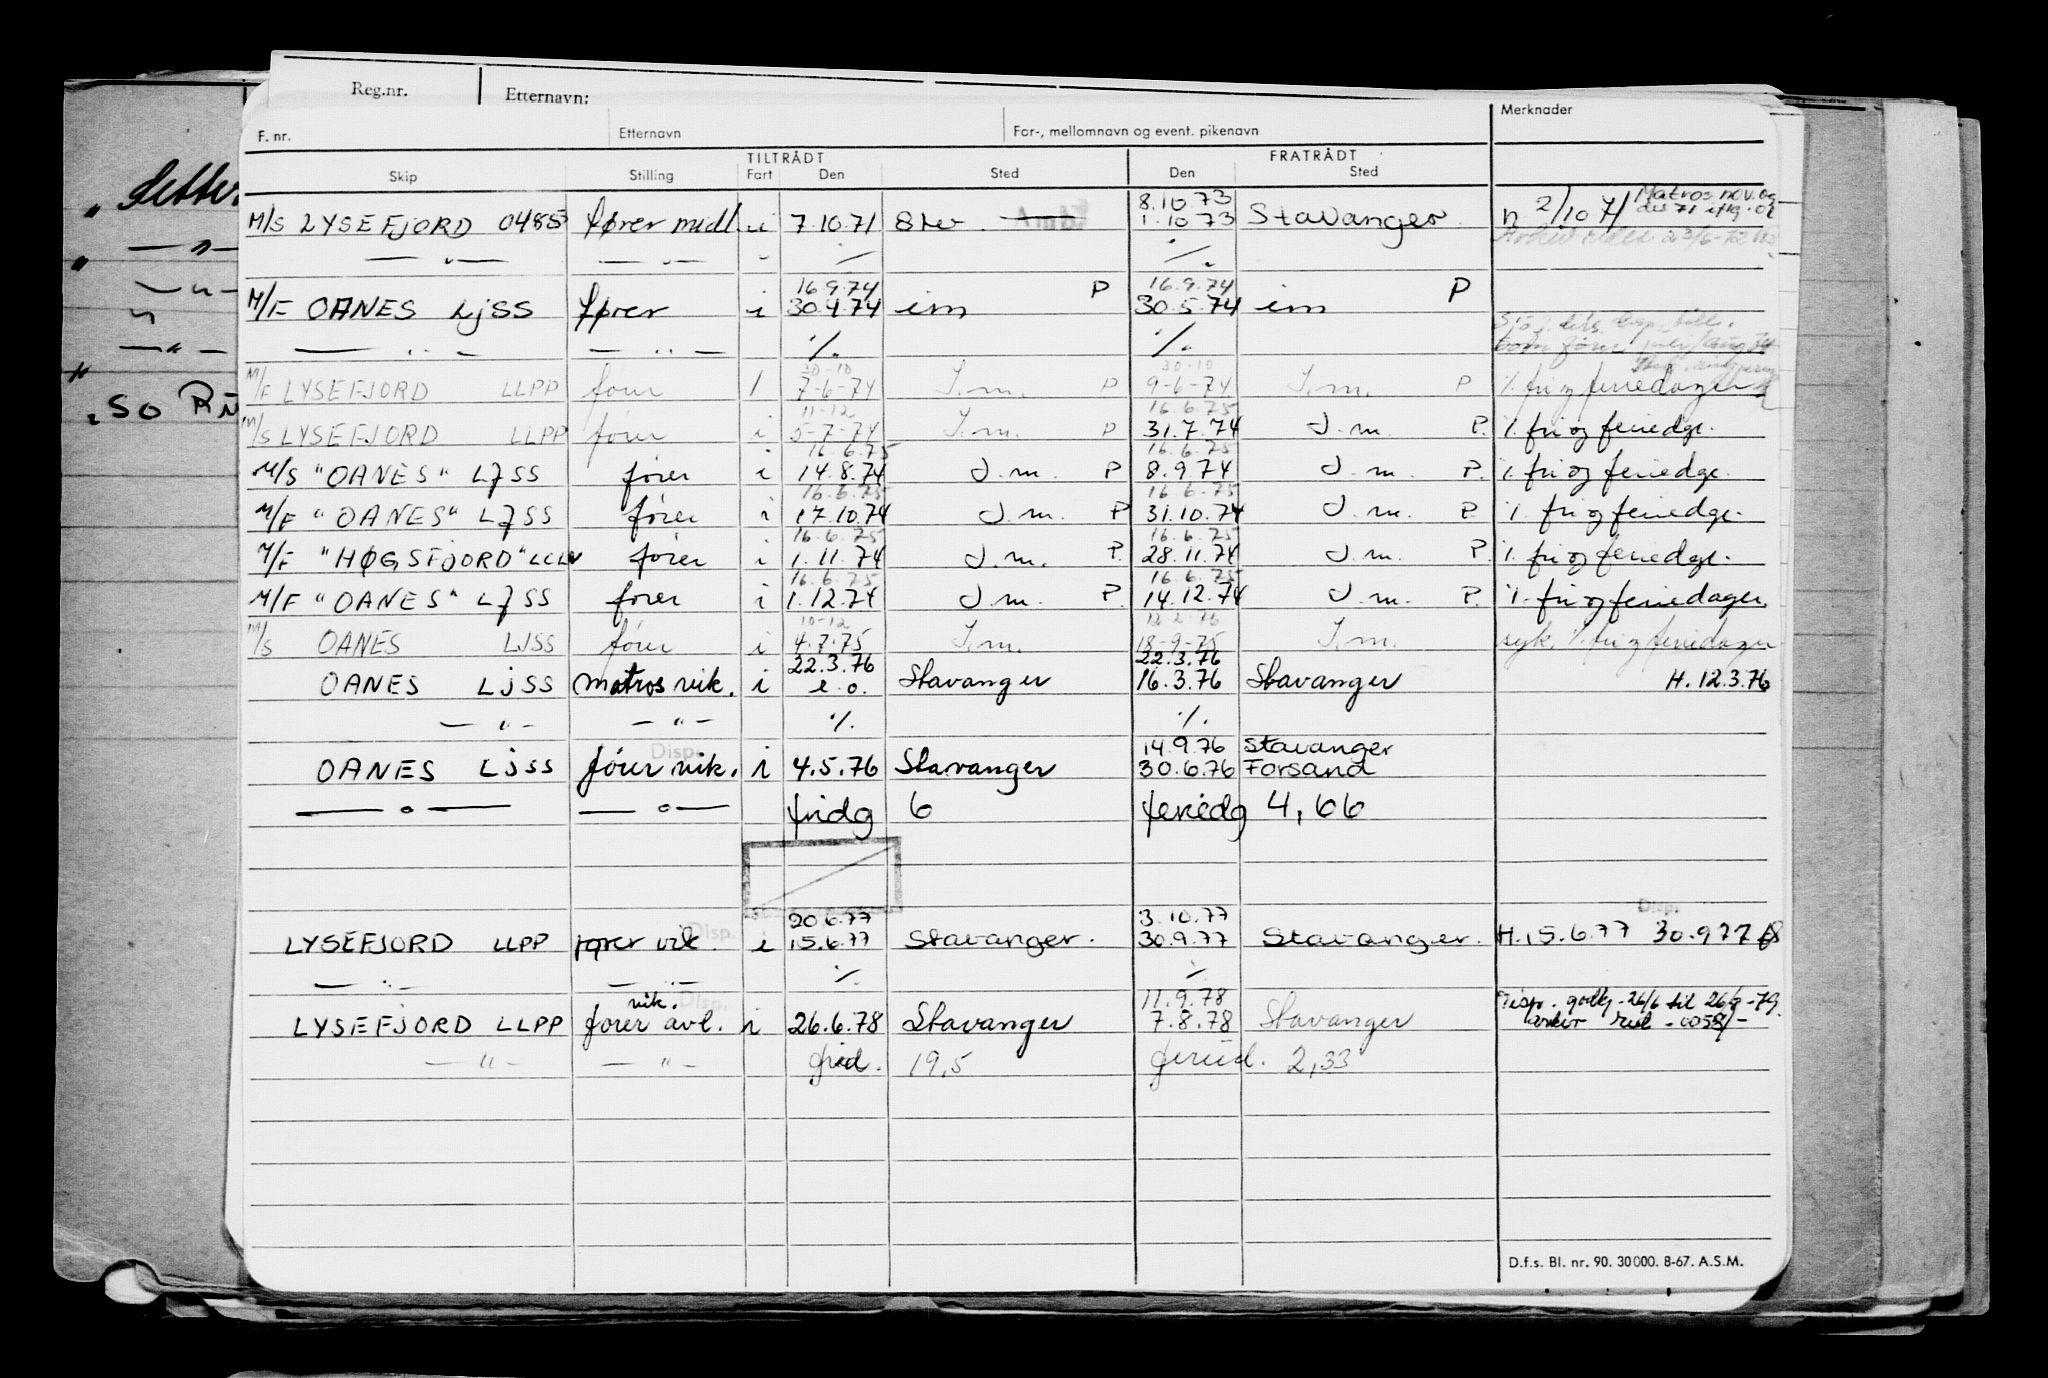 Reg.nr. Etternavn:
F. nr. Etternavn For-, mellomnavn og event. pikenavn Merknader
TILTRÅDT FRATRÅDT
Skip Stilling Fart Den Sted Den Sted
8.10.73 Matros nov. og
M/S LYSEFJORD 04853 fører midl. i 7.10.71 Stv 1.10 73 Stavanger n 2/10 71 des 71
— " — — " — " ⁒ ⁒
16.9.74 P 16.9.74 P
M/F OANES LJSS fører i 30.4.74 im 30.5.74 im
— " — — " — ⁒ ⁒
30-10 30-10
M/F LYSEFJORD LLPP fører 1 7-6-74 I.m. P 9-6-74 I.m. P ⁒ fri og feriedager
11-12 16.6.75
M/S LYSEFJORD LLPP fører i 5-7-74 I.m. P 31.7.74 I.m. P. ⁒ fri og feriedgr.
16.6.75 16.6.75
M/S "OANES" LJSS fører i 14.8.74 I.m. P 8.9.74 I.m. P. ⁒ fri og feriedgr.
16.6.75 16.6.75
M/F "OANES" LJSS fører i 17.10.74 I.m. P 31.10.74 I.m. P ⁒ fri og feriedgr.
16.6.75 16.6.75
M/F "HØGSFJORD" LCLV fører i 1.11.74 I.m. P. 28.11.74 I.m. P. ⁒ fri og feriedgr.
16.6.75 16.6.75
M/F "OANES" LJSS fører i 1.12.74 I.m. P. 14.12.74 I.m. P. ⁒ fri og feriedager
10-12 12.2.76
M/S OANES LJSS fører i 4.7.75 I.m. 18-9-75 I.m. syk. ⁒ fri og feriedager
22.3.76 22.3.76
OANES LJSS matros vik. i e.o. Stavanger 16.3.76 Stavanger H. 12.3.76
— " — — " — ⁒ ⁒
Disp. 14.9.76 Stavanger
OANES LJSS fører vik. i 4.5.76 Stavanger 30.6.76 Forsand
— " — — " — fridg 6 feriedg 4,66
20.6.77 3.10.77 Disp.
LYSEFJORD LLPP fører vik. Disp. i 15.6.77 Stavanger. 30.9.77 Stavanger. H.15.6.77 30.9 77
— " — — " — ⁒ ⁒
vik. Disp. 11.9.78 Disp. godkj. 26/6 til 26/9-79.
LYSEFJORD LLPP fører avl. i 26.6.78 Stavanger 7.8.78 Stavanger
— " — — " — frid. 19,5 feried. 2,33
D.f.s. Bl. nr. 90. 30000. 8-67. A.S.M.